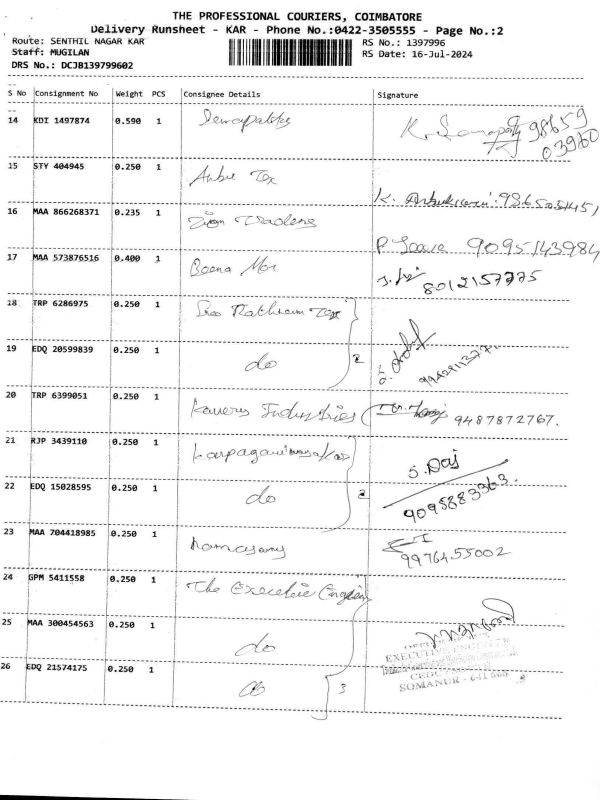 THE PROFESSIONAL COURIERS, COIMBATORE
Delivery Runsheet - KAR - Phone No.:0422-3505555 - Page No.:2
Route: SENTHIL NAGAR KAR RS No.: 1397996
Staff: MUGILAN RS Date: 16-Jul-2024
DRS No.: DCJB139799602
S No Consignment No Weight PCS Consignee Details Signature
14 KDI 1497874 0.590 1 98659
03960
15 STY 404945 0.250 1 Anbu Tex
K.
16 MAA 866268371 0.235 1 Zion Traders
P 9095143984
17 MAA 573876516 0.400 1 Beena Mor
8012157775
18 TRP 6286975 0.250 1 Sree Rathinam Tex
19 EDQ 20599839 0.250 1 do 2
20 TRP 6399051 0.250 1 Kavery Industries 9487872767.
21 RJP 3439110 0.250 1
S. Daj
22 EDQ 15028595 0.250 1 do 2
9095883363.
23 MAA 704418985 0.250 1 Ramasamy
9976455002
24 GPM 5411558 0.250 1 The Executive Engineer
25 MAA 300454563 0.250 1 do
EXECUTIVE ENGINEER
26 EDQ 21574175 0.250 1 do 3
SOMANUR - 641 668